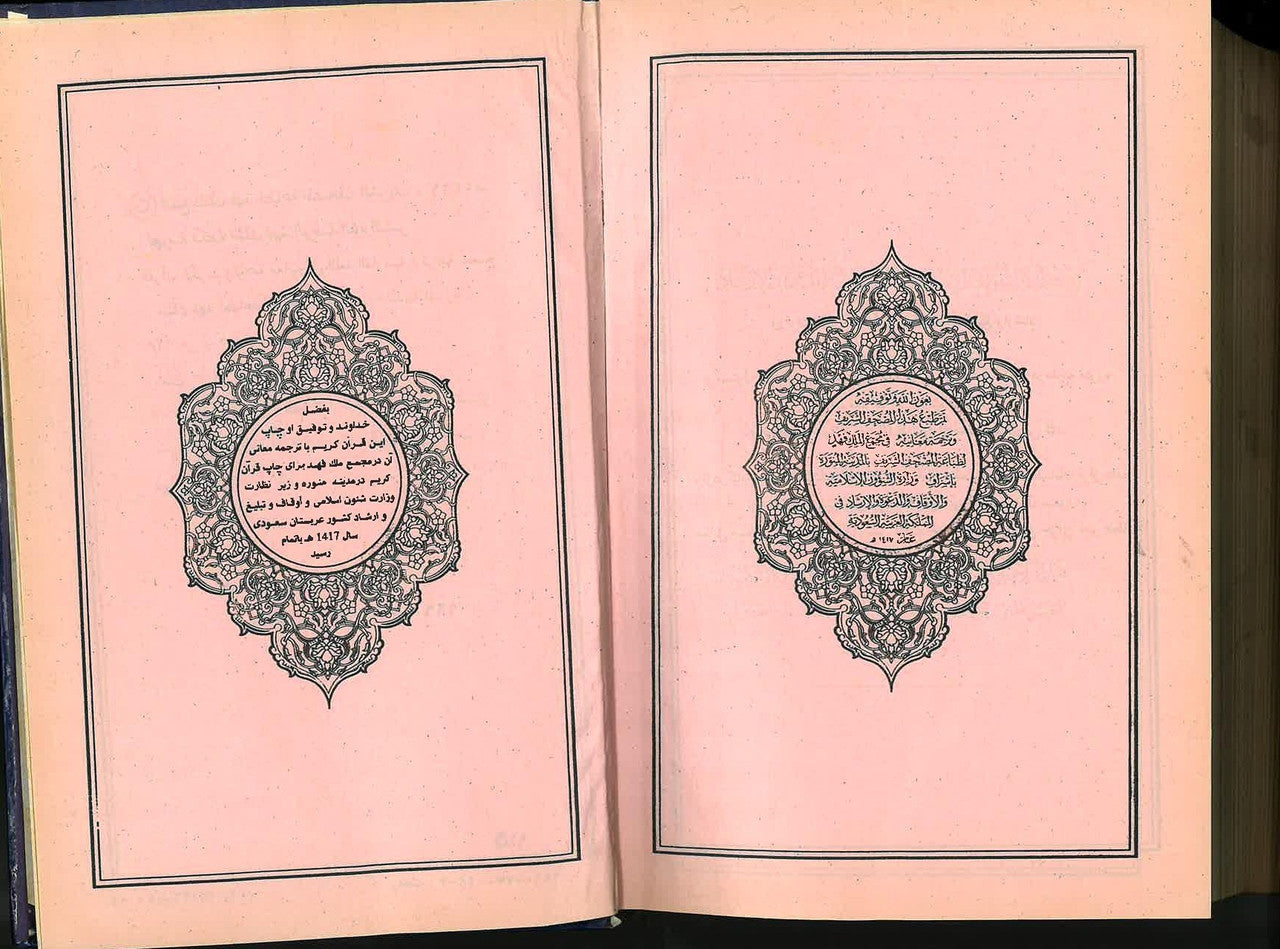 بعون الله وتوفيقه
تم طبع هذا المصحف الشريف
وترجمة معانيه في مجمع الملك فهد
لطباعة المصحف الشريف بالمدينة المنورة
بإشراف وزارة الشؤون الإسلامية
والأوقاف والدعوة والإرشاد في
المملكة العربية السعودية
عام ١٤١٧ هـ
بفضل
خداوند و توفیق او چاپ
این قرآن کریم با ترجمه معانی
آن درمجمع ملك فهد برای چاپ قرآن
کریم درمدینه منوره و زیر نظارت
وزارت شئون اسلامی و أوقاف و تبلیغ
و ارشاد کشور عربستان سعودی
سال 1417 هـ باتمام
رسید